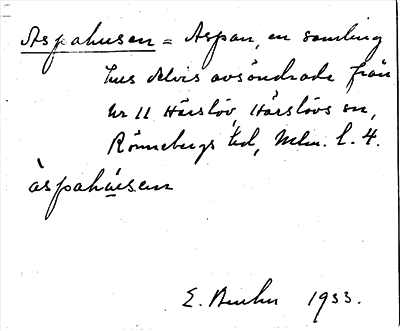 Aspahusen = Aspan, en samling
hus delvis avsöndrade från
Nr 11 Hårslöv, Hårslövs sn,
Rönnebergs hd, Mlm. l. 4.
àspahúsen
E. 1933.